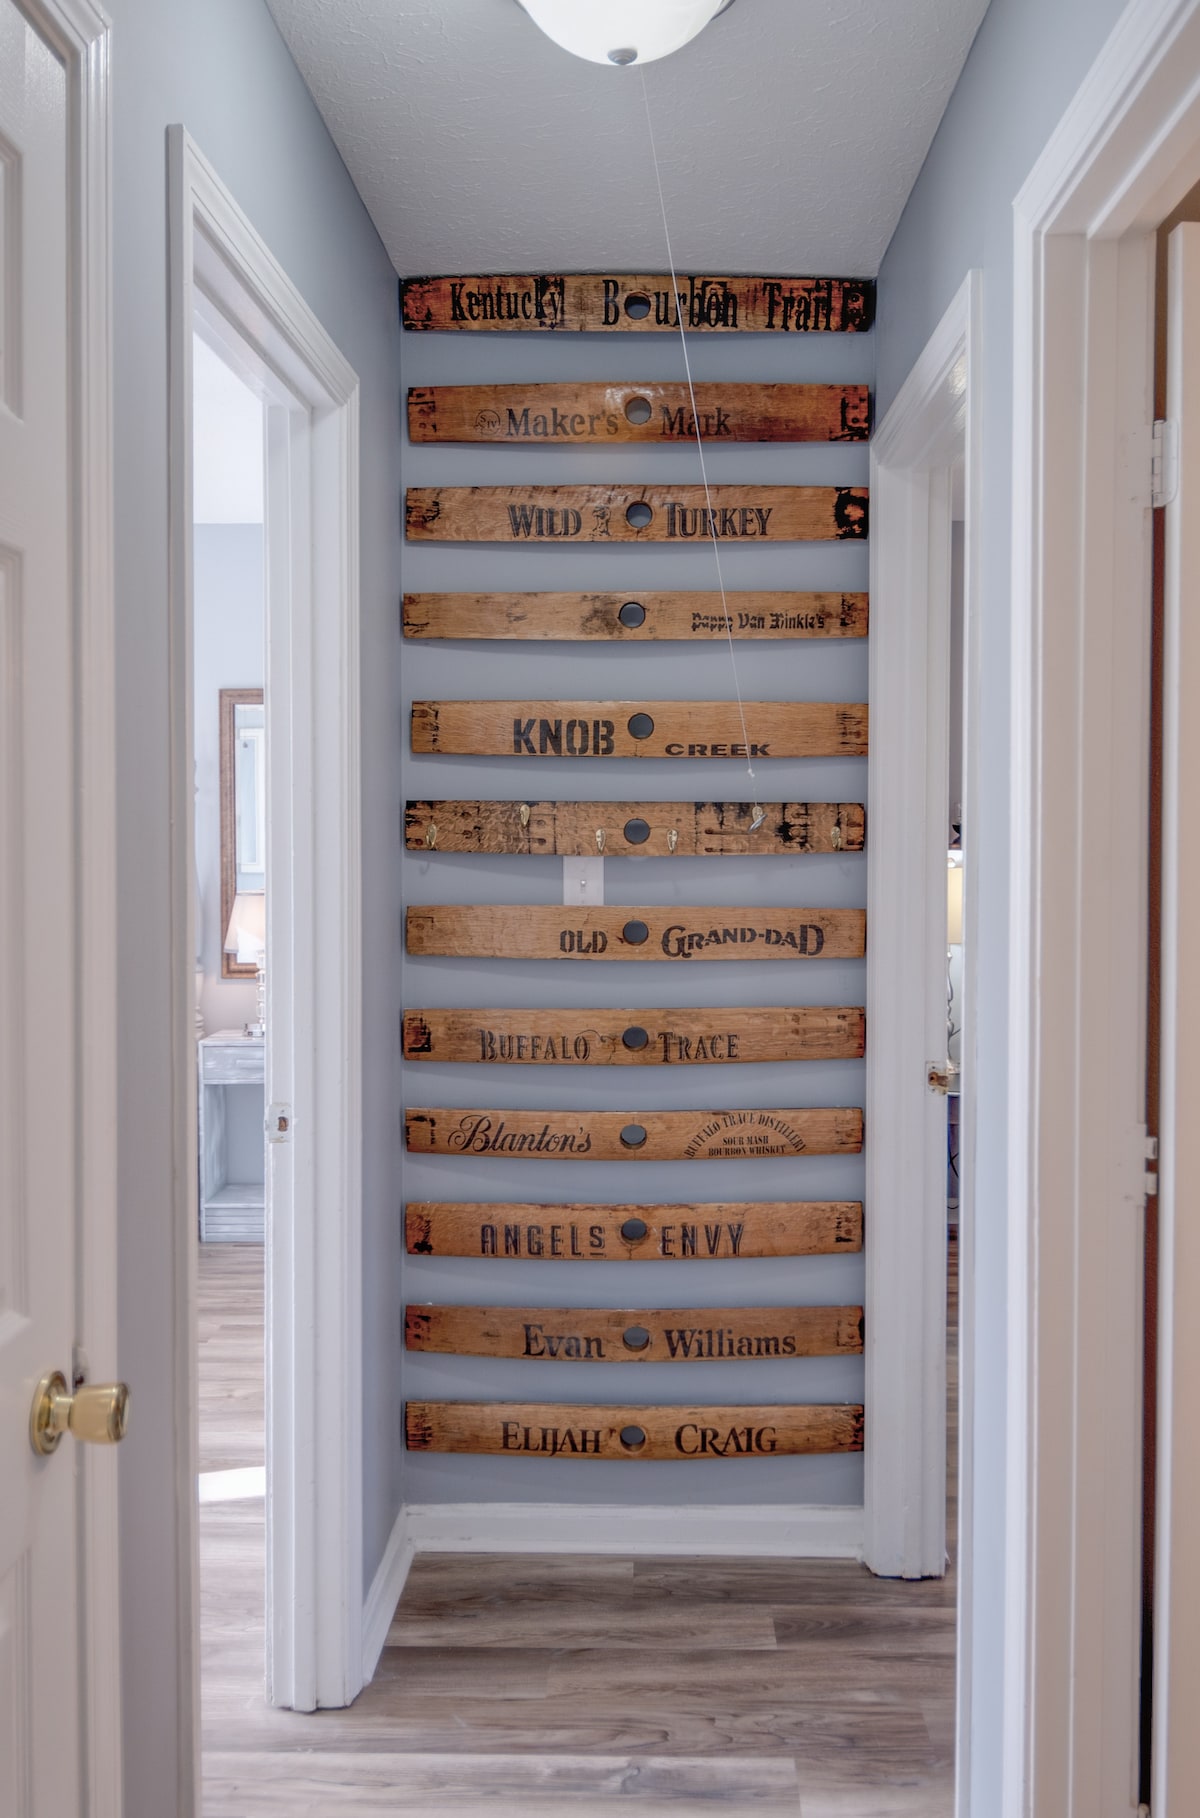 Kentucky Bourbon Trail
SIV Maker's Mark
WILD TURKEY
Pappy Van Winkle's
KNOB CREEK
OLD GRAND-DAD
BUFFALO TRACE
Blanton's BUFFALO TRACE DISTILLERY
SOUR MASH
BOURBON WHISKEY
ANGELS ENVY
Evan Williams
ELIJAH CRAIG